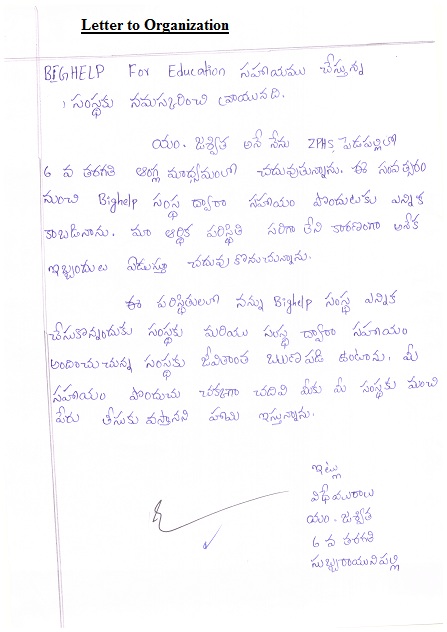 Letter to Organization
BIGHELP For Education సహాయము చేస్తున్న
సంస్థకు నమస్కరించి వ్రాయునది.
యం. జశ్విత అనే నేను ZPHS పెదపల్లిలో
6 వ తరగతి ఆంగ్ల మాధ్యమంలో చదువుతున్నాను. ఈ సంవత్సరం
నుంచి Bighelp సంస్థ ద్వారా సహాయం పొందుటకు ఎన్నిక
కాబడినాను. మా ఆర్థిక పరిస్థితి సరిగా లేని కారణంగా అనేక
ఇబ్బందులు ఏదుర్కొ చదువు కొనుచున్నాను.
ఈ పరిస్థితులలో నన్ను Bighelp సంస్థ ఎన్నిక
చేసుకొన్నందుకు సంస్థకు మరియు సంస్థ ద్వారా సహాయం
అందించుచున్న సంస్థకు జీవితాంత ఋణపడి ఉంటాను. మీ
సహాయం పొందుచు చక్కగా చదివి మీకు మీ సంస్థకు మంచి
పేరు తీసుకు వస్తానని హామి ఇస్తున్నాను.
ఇట్లు
విధేయురాలు
యం. జశ్విత
6 వ తరగతి
సుబ్బరాయునిపల్లి